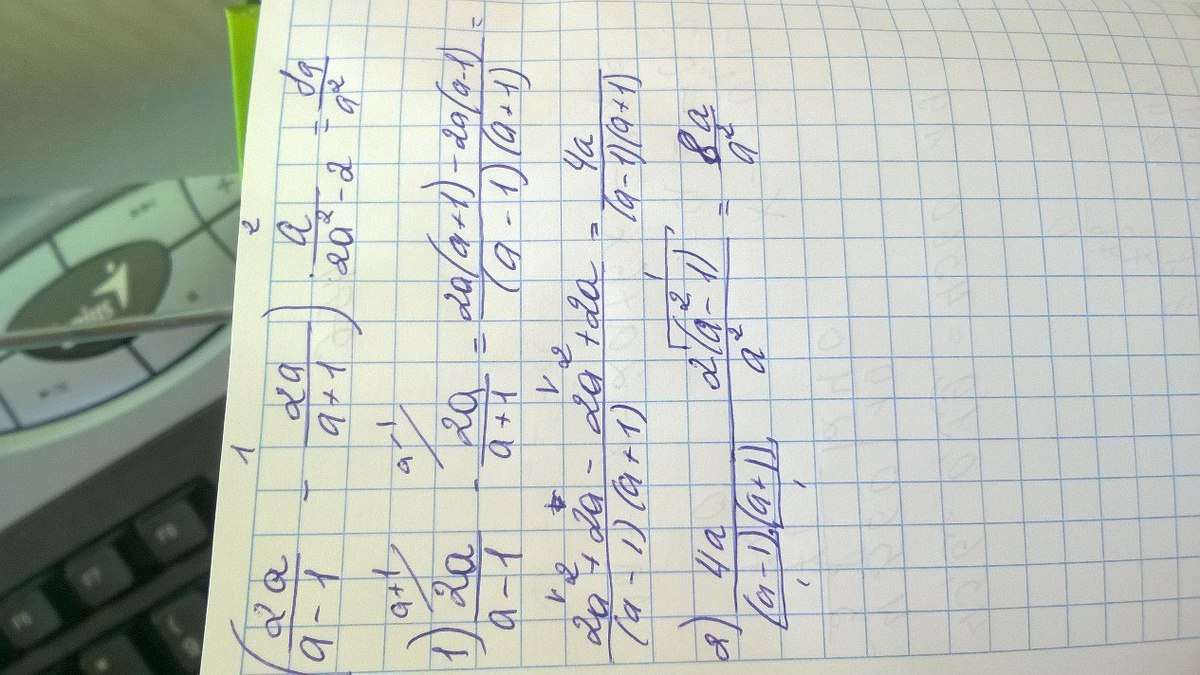 1 2
(2a/(a-1) - 2a/(a+1)) · a/(2a²-2) = 8a/a²
a+1 a-1
1) 2a/(a-1) - 2a/(a+1) = (2a(a+1) - 2a(a-1))/((a-1)(a+1)) =
(2a² + 2a - 2a² + 2a)/((a-1)(a+1)) = 4a/((a-1)(a+1))
2) 4a/((a-1)(a+1)) 2(a²-1)/a² = 8a/a²